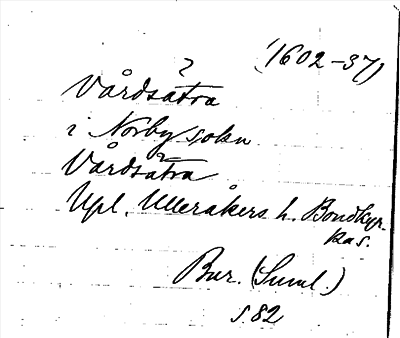 (1602-37)
Vårdsätra
i Norby sokn
Vårdsätra
Upl. Ulleråkers h. Bondkyr-
kas.
Bur. (Suml.)
s. 82